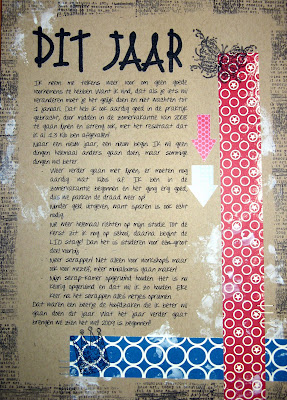 DIT JAAR
Ik neem me telkens weer voor om geen goede
voornemens te hebben want ik vind, dat als je iets wil
veranderen moet je het gelijk doen en niet wachten tot
1 januari. Dat heb ik ook aardig goed in de praktijk
gebracht, door midden in de zomervakantie van 2008
te gaan lijnen en streng ook, met het resultaat dat
ik al 23 kilo ben afgevallen!
Maar een nieuw jaar, een nieuw begin. Ik wil geen
dingen helemaal anders gaan doen, maar sommige
dingen wel beter:
Weer verder gaan met lijnen, er moeten nog
aardig wat kilos af. Ik ben in de
zomervakantie begonnen en het ging erg goed,
dus we pakken de draad weer op
Minder geld uitgeven, want sparen is ook echt
nodig.
Me weer helemaal richten op mijn studie. Tot de
kerst zit ik nog op school, daarna begint de
LIO stage! Dan het is studeren voor een groot
deel voorbij.
Meer scrappen! Niet alleen voor workshops maar
ook voor mezelf, meer minialbums gaan maken!
Mijn scrap-kamer opgeruimd houden. Het is nu
keurig opgeruimd en dat wil ik zo houden. Elke
keer na het scrappen alles netjes opruimen.
Dat waren een beetje de hoofdzaken die ik beter wil
gaan doen dit jaar. Wat het jaar verder gaat
brengen we zien het wel. 2009 is begonnen!!